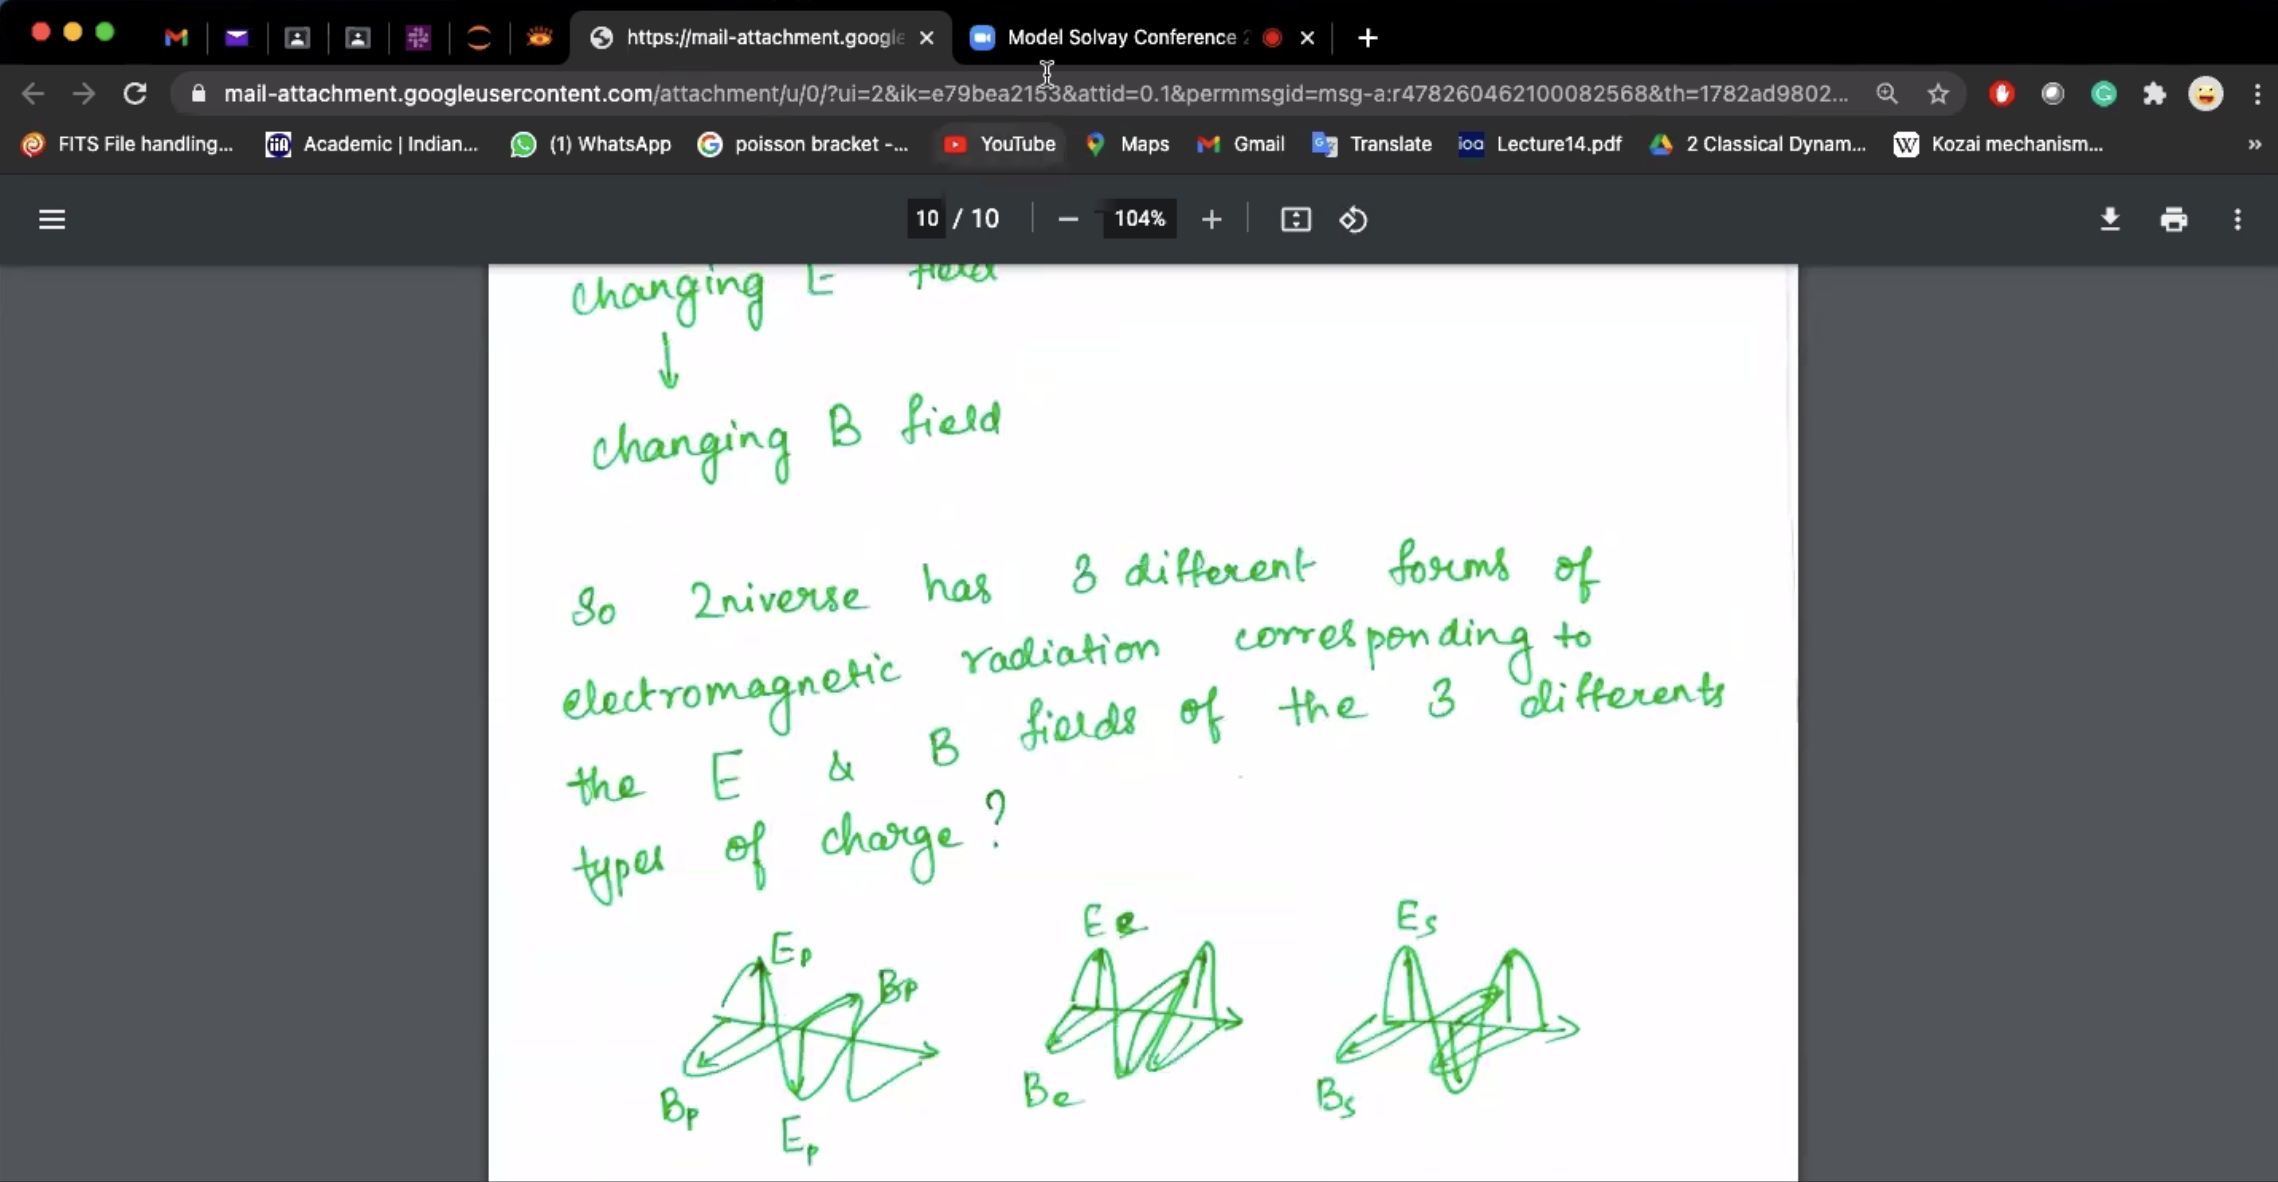 https://mail-attachment.google
Model Solvay Conference 2
mail-attachment.googleusercontent.com/attachment/u/0/?ui=2&ik=e79bea2153&attid=0.1&permmsgid=msg-a:r478260462100082568&th=1782ad9802...
FITS File handling... Academic | Indian... (1) WhatsApp poisson bracket -... YouTube Maps Gmail Translate Lecture14.pdf 2 Classical Dynam... Kozai mechanism... »
10 / 10 − 104% +
changing E field
↓
changing B field
So 2niverse has 3 different forms of
electromagnetic radiation corresponding to
the E & B fields of the 3 differents
types of charge?
Ep Bp Ee Es
Bp Ep Be Bs